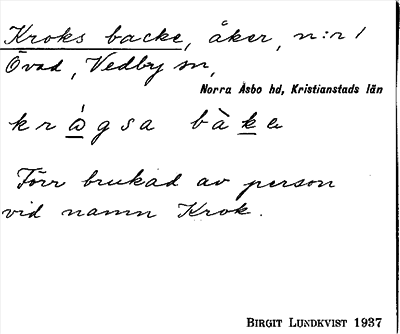 Kroks backe, åker, n:r 1
Övad, Vedby sn,
Norra Åsbo hd, Kristianstads län
Förr brukad av person
vid namn Krok.
BIRGIT LUNDKVIST 1937